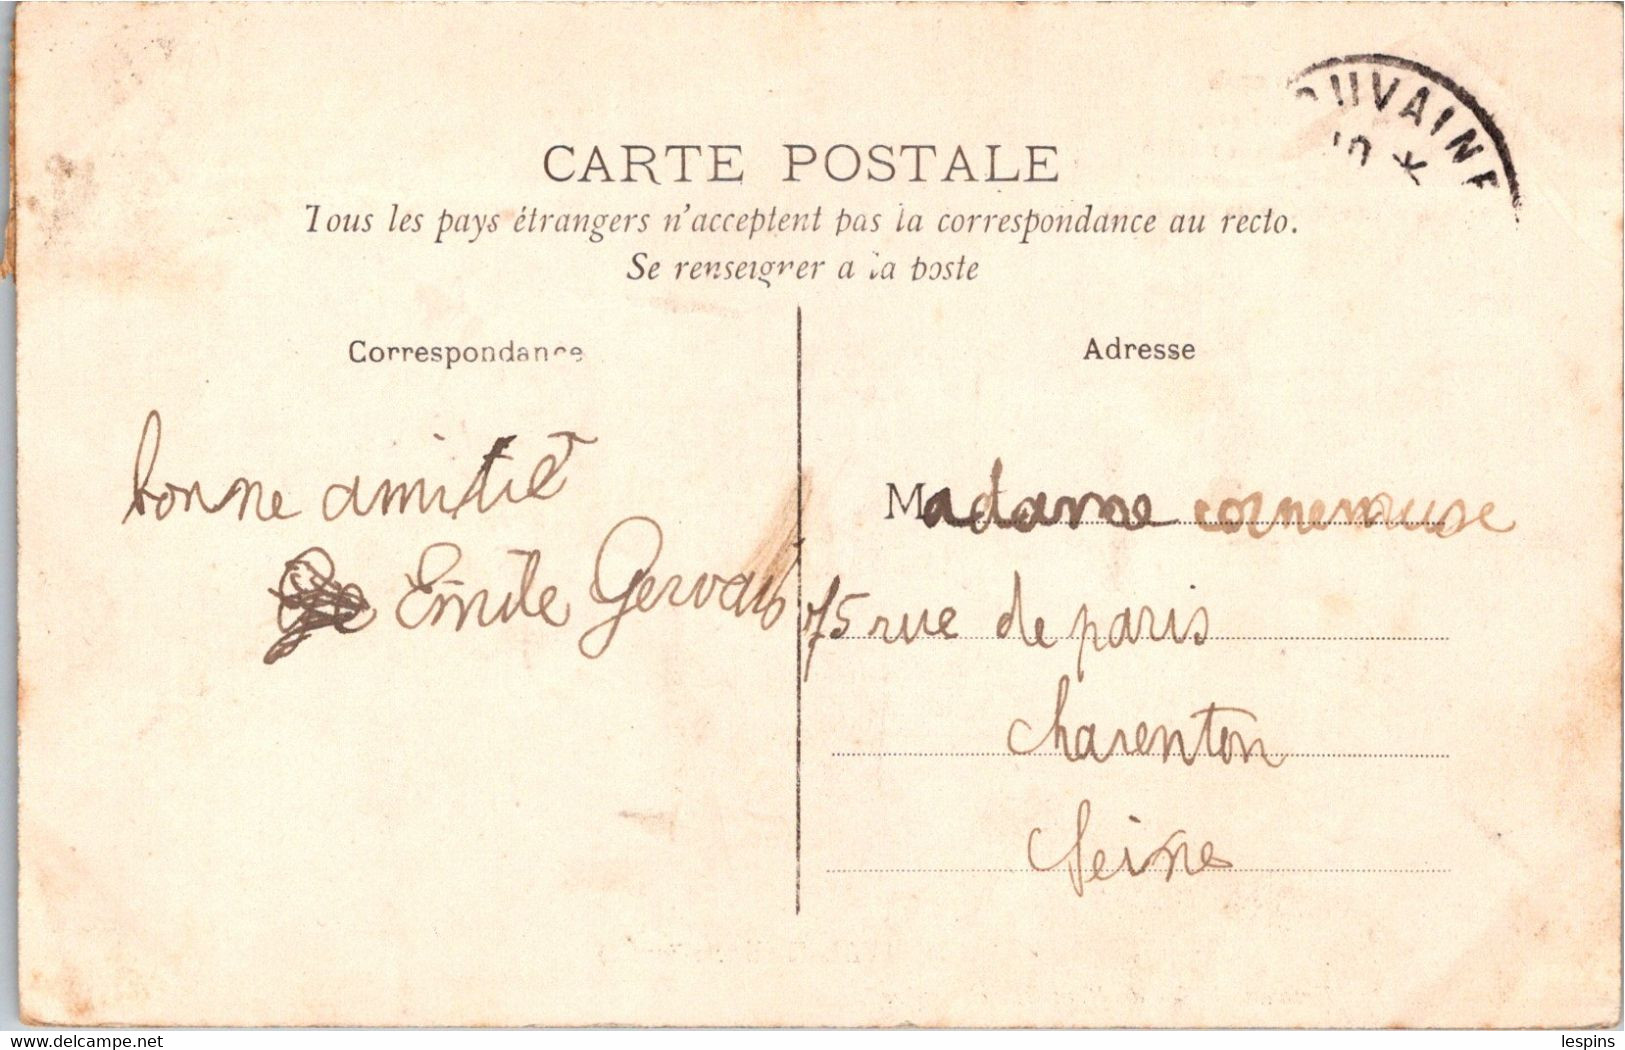 OUVAINE
CARTE POSTALE
Tous les pays étrangers n'acceptent pas la correspondance au recto.
Se renseigner a la poste
Correspondance
bonne amitié
Emile Gervais
Adresse
Madame cornemuse
75 rue de paris
charenton
Seine
delcampe.net
lespins